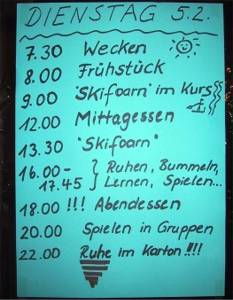 DIENSTAG 5.2.
7.30 Wecken
8.00 Frühstück
9.00 'Skifoarn' im Kurs
12.00 Mittagessen
13.30 "Skifoarn"
16.00- } Ruhen, Bummeln,
17.45 } Lernen, Spielen...
18.00 !!! Abendessen
20.00 Spielen in Gruppen
22.00 Ruhe im Karton !!!!